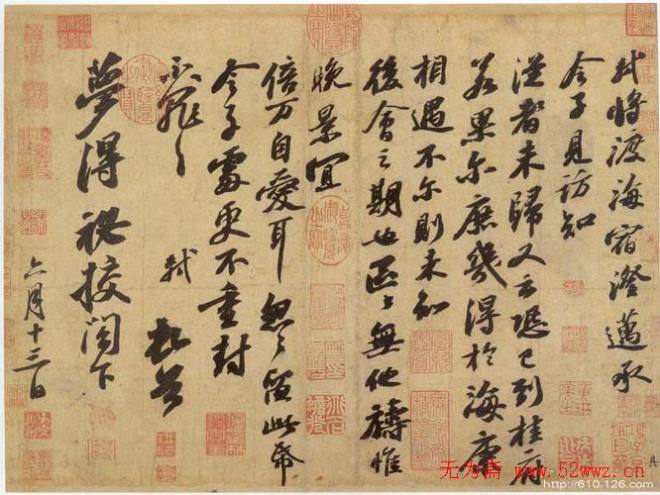 軾將渡海宿澄邁承
令子見訪知
從者未歸又云恐已到桂府
若果尓庶幾得於海康
相遇不尓則未知
後會之期也區〻無他禱惟
晚景宜
倍万自愛耳怱〻留此帋
令子處更不重封
不罪〻
軾頓首
夢得祕校閣下
六月十三日
无为斋 www.52wwz.cn
http://610.126.com